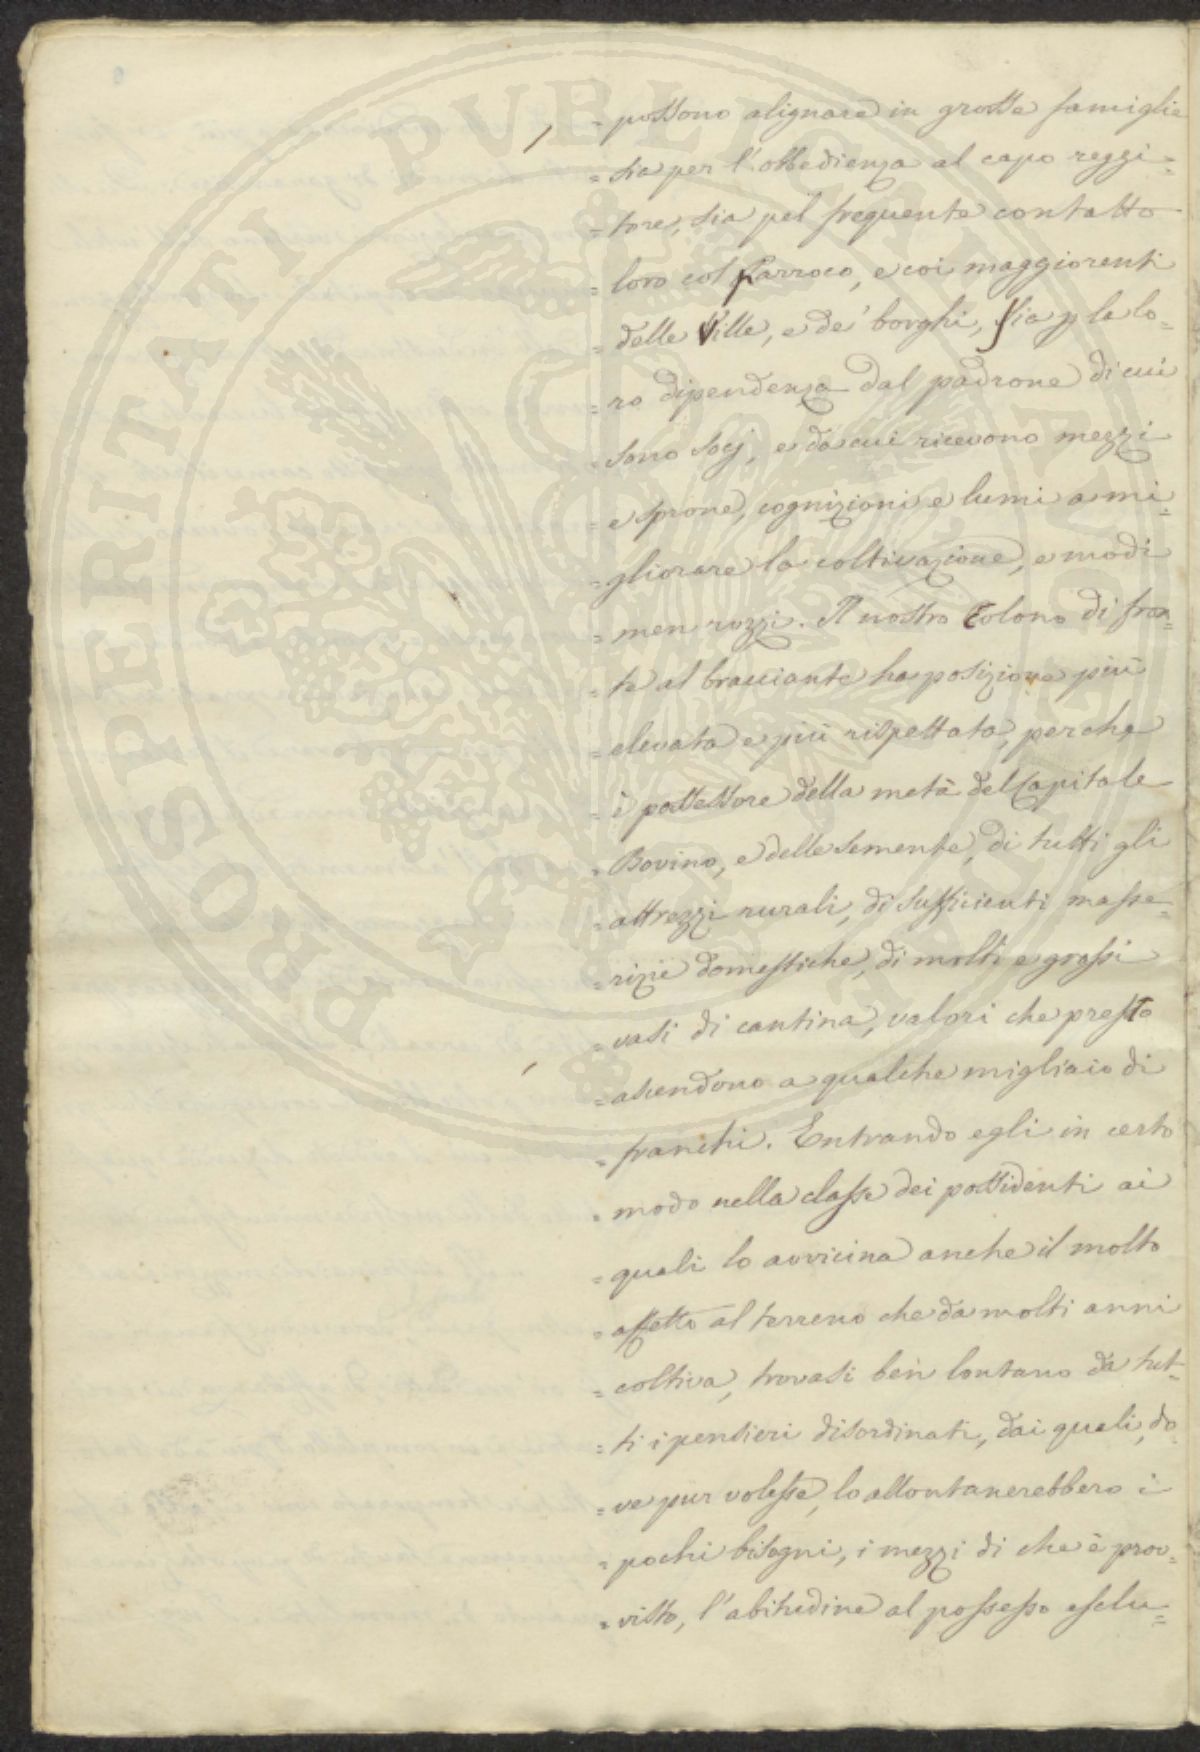 PROSPERITATI PVBLICAE
= possono alignare in grosse famiglie
= sia per l'obbedienza al capo reggi=
= tore, sia pel frequente contatto
= loro col Parroco, e coi maggiorenti
= delle Ville, e de' borghi, sia p le lo=
= ro dipendenza dal padrone di cui
= sono socj, e da cui ricevono mezzi
= e sprone, cognizioni e lumi a mi=
= gliorare la coltivazione, e modi
= men rozzi. Il nostro Colono di fron=
= te al bracciante ha posizione più
= elevata e più rispettata, perche
= è possessore della metà del Capitale
= Bovino, e delle semente, di tutti gli
= attrezzi rurali, di sufficienti masse=
= rizie domestiche, di molti e grossi
= vasi di cantina, valori che presto
= ascendono a qualche migliaio di
= franchi. Entrando egli in certo
= modo nella classe dei possidenti ai
= quali lo avvicina anche il molto
= affetto al terreno che da molti anni
= coltiva, trovasi ben lontano da tut=
= ti i pensieri disordinati, dai quali, do
= ve pur volesse, lo allontanerebbero i
= pochi bisogni, i mezzi di che è prov=
= visto, l'abitudine al possesso esclu=